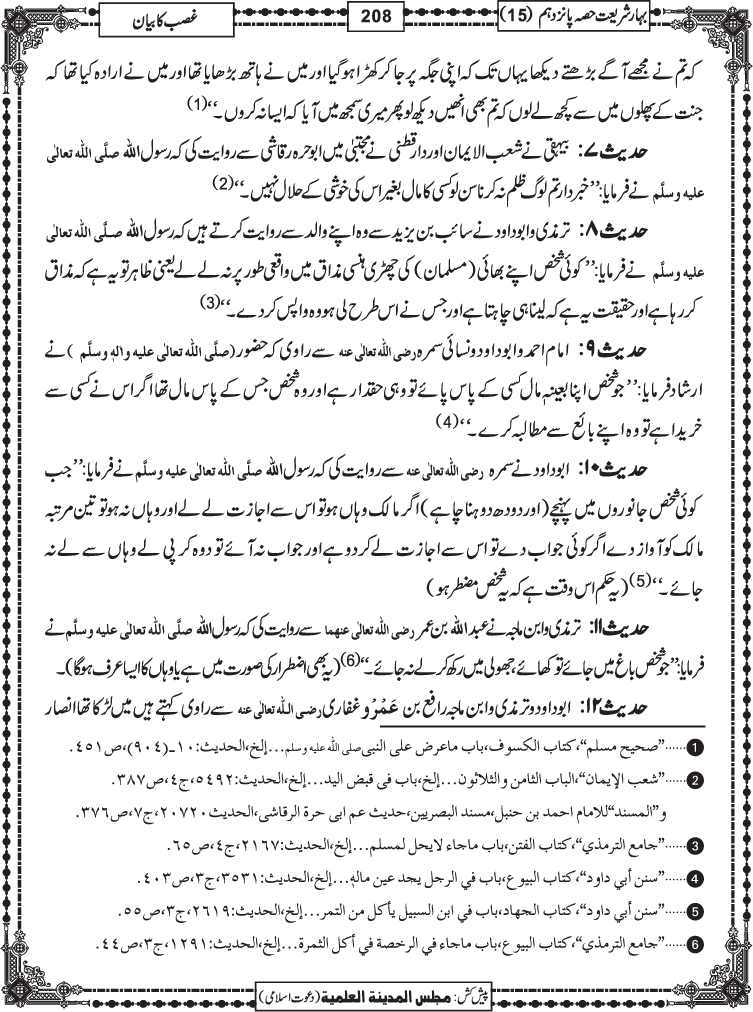 بہارشریعت حصہ پانزدہم (15)
208
غصب کا بیان
کہ تم نے مجھے آگے بڑھتے دیکھا یہاں تک کہ اپنی جگہ پر جا کر کھڑا ہوگیا اور میں نے ہاتھ بڑھایا تھا اور میں نے ارادہ کیا تھا کہ
جنت کے پھلوں میں سے کچھ لے لوں کہ تم بھی انھیں دیکھ لو پھر میری سمجھ میں آیا کہ ایسا نہ کروں۔‘‘(1)
حدیث ۷: بیہقی نے شعب الایمان اور دارقطنی نے مجتبیٰ میں ابوحرہ رقاشی سے روایت کی کہ رسول اللہ صلَّی اللہ تعالٰی
علیہ وسلَّم نے فرمایا: ’’خبردار تم لوگ ظلم نہ کرنا سن لو کسی کا مال بغیر اس کی خوشی کے حلال نہیں۔‘‘(2)
حدیث ۸: ترمذی و ابوداود نے سائب بن یزید سے وہ اپنے والد سے روایت کرتے ہیں کہ رسول اللہ صلَّی اللہ تعالٰی
علیہ وسلَّم نے فرمایا: ’’کوئی شخص اپنے بھائی (مسلمان) کی چھڑی ہنسی مذاق میں واقعی طور پر نہ لے لے یعنی ظاہر تو یہ ہے کہ مذاق
کر رہا ہے اور حقیقت یہ ہے کہ لینا ہی چاہتا ہے اور جس نے اس طرح لی ہو وہ واپس کردے۔‘‘(3)
حدیث ۹: امام احمد و ابوداود و نسائی سمرہ رضی اللہ تعالٰی عنہ سے راوی کہ حضور (صلَّی اللہ تعالٰی علیہ واٰلہٖ وسلَّم) نے
ارشاد فرمایا: ’’جو شخص اپنا بعینہٖ مال کسی کے پاس پائے تو وہی حقدار ہے اور وہ شخص جس کے پاس مال تھا اگر اس نے کسی سے
خریدا ہے تو وہ اپنے بائع سے مطالبہ کرے۔‘‘(4)
حدیث ۱۰: ابوداود نے سمرہ رضی اللہ تعالٰی عنہ سے روایت کی کہ رسول اللہ صلَّی اللہ تعالٰی علیہ وسلَّم نے فرمایا: ’’جب
کوئی شخص جانوروں میں پہنچے (اور دودھ دوہنا چاہے) اگر مالک وہاں ہو تو اس سے اجازت لے لے اور وہاں نہ ہو تو تین مرتبہ
مالک کو آواز دے اگر کوئی جواب دے تو اس سے اجازت لے کر دوہے اور جواب نہ آئے تو دوہ کر پی لے وہاں سے لے نہ
جائے۔‘‘(5) (یہ حکم اس وقت ہے کہ یہ شخص مضطر ہو)
حدیث ۱۱: ترمذی و ابن ماجہ نے عبد اللہ بن عمر رضی اللہ تعالٰی عنہما سے روایت کی کہ رسول اللہ صلَّی اللہ تعالٰی علیہ وسلَّم نے
فرمایا: ’’جو شخص باغ میں جائے تو کھائے، جھولی میں رکھ کر لے نہ جائے۔‘‘(6) (یہ بھی اضطرار کی صورت میں ہے یا وہاں کا ایسا عرف ہوگا)۔
حدیث ۱۲: ابوداود و ترمذی و ابن ماجہ رافع بن عَمْرْو غفاری رضی اللہ تعالٰی عنہ سے راوی کہتے ہیں میں لڑکا تھا انصار
1......’’صحيح مسلم‘‘، كتاب الكسوف، باب ماعرض على النبي صلی اللہ علیہ وسلم... إلخ، الحديث: ١٠-(٩٠٤)، ص٤٥١.
2......’’شعب الإيمان‘‘، الباب الثامن والثلاثون... إلخ، باب في قبض اليد... إلخ، الحديث: ٥٤٩٢، ج٤، ص٣٨٧.
و’’المسند‘‘ للامام احمد بن حنبل، مسند البصريين، حديث عم ابى حرة الرقاشى، الحديث: ٢٠٧٢٠، ج٧، ص٣٧٦.
3......’’جامع الترمذي‘‘، كتاب الفتن، باب ماجاء لايحل لمسلم... إلخ، الحديث: ٢١٦٧، ج٤، ص٦٥.
4......’’سنن أبي داود‘‘، كتاب البيوع، باب في الرجل يجد عين ماله... إلخ، الحديث: ٣٥٣١، ج٣، ص٤٠٣.
5......’’سنن أبي داود‘‘، كتاب الجهاد، باب في ابن السبيل يأكل من التمر... إلخ، الحديث: ٢٦١٩، ج٣، ص٥٥.
6......’’جامع الترمذي‘‘، كتاب البيوع، باب ماجاء في الرخصة في أكل الثمرة... إلخ، الحديث: ١٢٩١، ج٣، ص٤٤.
پیش کش: مجلس المدینة العلمیة (دعوت اسلامی)